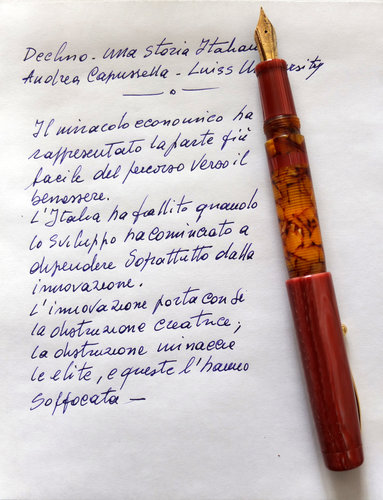 Declino - una storia Italian
Andrea Capussella - Luiss University
Il miracolo economico ha
rappresentato la parte più
facile del percorso verso il
benessere.
L'Italia ha fallito quando
lo sviluppo ha cominciato a
dipendere soprattutto dalla
innovazione.
L'innovazione porta con se
la distruzione creatrice;
la distruzione minaccia
le elite, e queste l'hanno
soffocata —